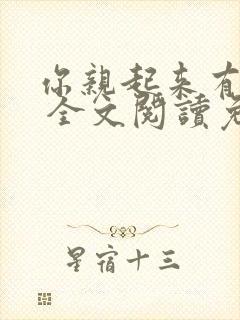 你親起來有
全文閱讀免
星宿十三